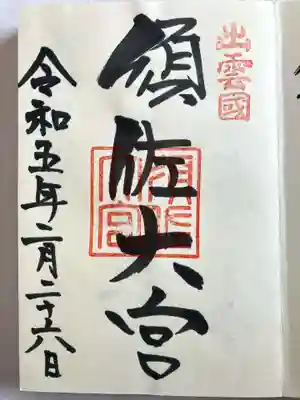 出雲國
須佐大宮
令和五年二月二十六日